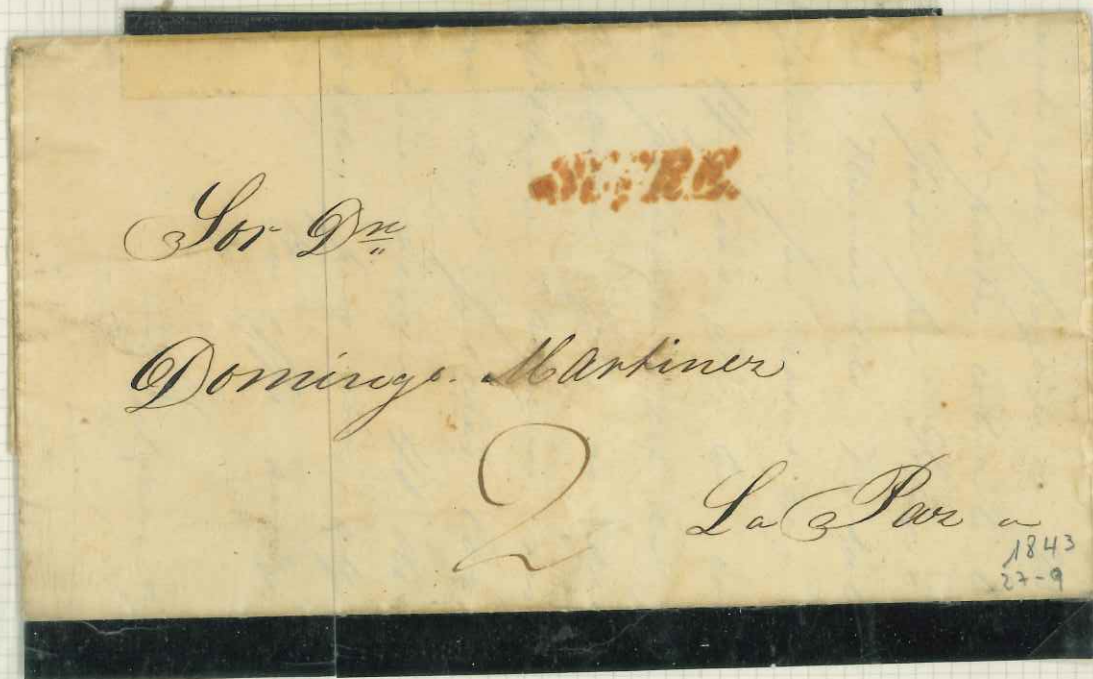 SUCRE.
Sor Dn
Domingo. Martinez
2
La Paz
1843
27-9